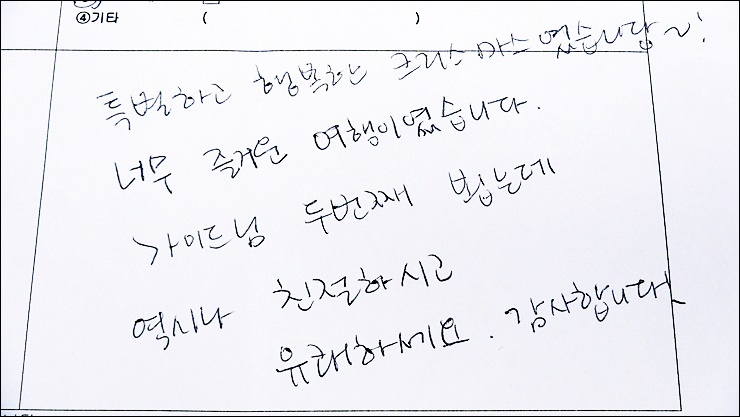 ④기타 ( )
특별하고 행복한 크리스마스였습니당~!
너무 즐거운 여행이였습니다.
가이드님 두번째 뵙는데
역시나 친절하시고
유쾌하세요. 감사합니다